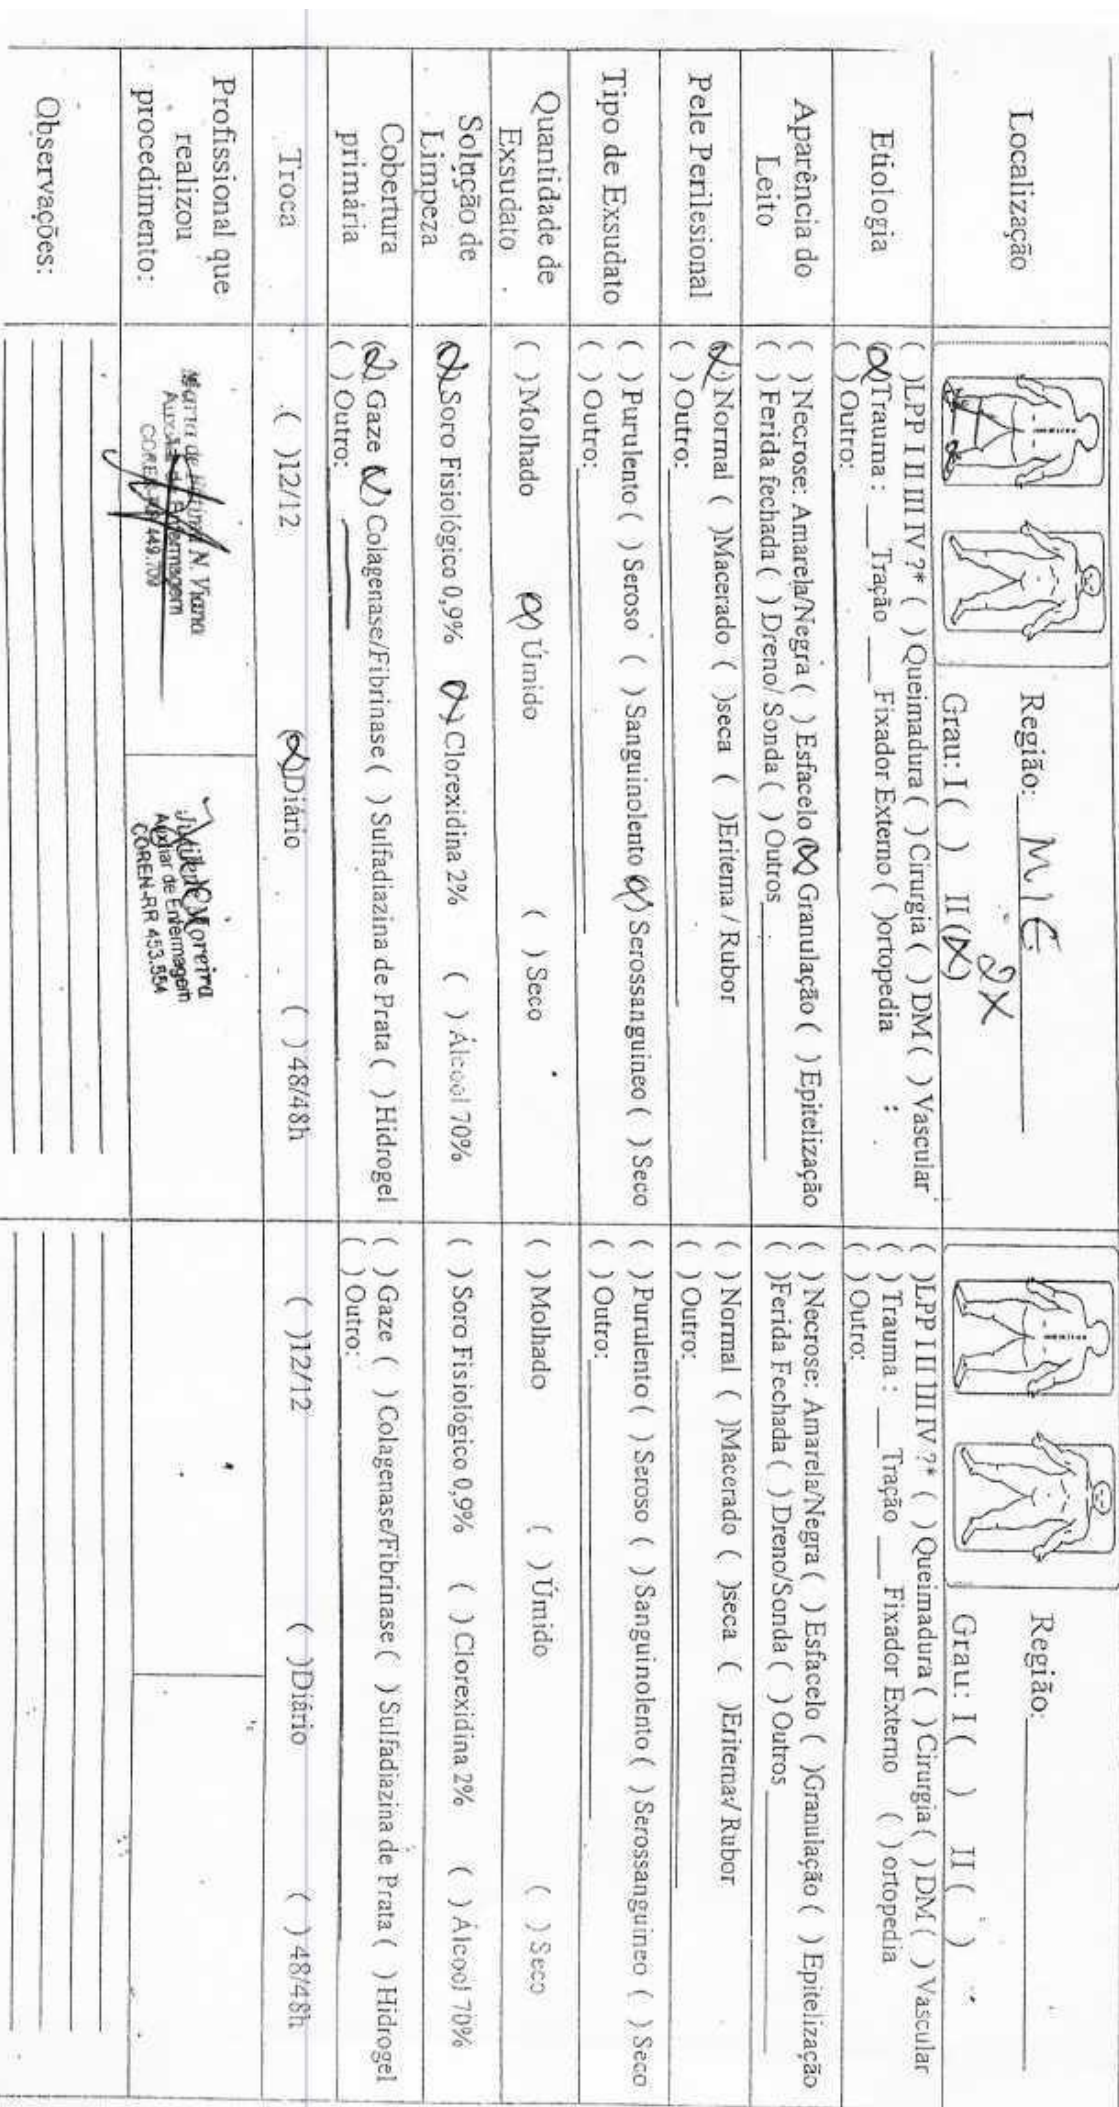 Localização
Região: M I E
2X
Grau: I ( ) II (X)
Região:
Grau: I ( ) II ( )
Etiologia
( )LPP I II III IV ?* ( ) Queimadura ( ) Cirurgia ( ) DM ( ) Vascular
(X)Trauma : ___ Tração ___ Fixador Externo ( )ortopedia
( ) Outro:
( )LPP I II III IV ?* ( ) Queimadura ( ) Cirurgia ( ) DM ( ) Vascular
( ) Trauma : ___ Tração ___ Fixador Externo ( ) ortopedia
( ) Outro:
Aparência do
Leito
( ) Necrose: Amarela/Negra ( ) Esfacelo (X) Granulação ( ) Epitelização
( ) Ferida fechada ( ) Dreno/ Sonda ( ) Outros
( ) Necrose: Amarela/Negra ( ) Esfacelo ( )Granulação ( ) Epitelização
( )Ferida Fechada ( ) Dreno/Sonda ( ) Outros
Pele Perilesional
(X) Normal ( )Macerado ( )seca ( )Eritema / Rubor
( ) Outro:
( ) Normal ( )Macerado ( )seca ( )Eritema/ Rubor
( ) Outro:
Tipo de Exsudato
( ) Purulento ( ) Seroso ( ) Sanguinolento (X) Serossanguineo ( ) Seco
( ) Outro:
( ) Purulento ( ) Seroso ( ) Sanguinolento ( ) Serossanguineo ( ) Seco
( ) Outro:
Quantidade de
Exsudato
( ) Molhado (X) Úmido ( ) Seco
( ) Molhado ( ) Úmido ( ) Seco
Solução de
Limpeza
(X) Soro Fisiológico 0,9% (X) Clorexidina 2% ( ) Álcool 70%
( ) Soro Fisiológico 0,9% ( ) Clorexidina 2% ( ) Álcool 70%
Cobertura
primária
(X) Gaze (X) Colagenase/Fibrinase ( ) Sulfadiazina de Prata ( ) Hidrogel
( ) Outro:
( ) Gaze ( ) Colagenase/Fibrinase ( ) Sulfadiazina de Prata ( ) Hidrogel
( ) Outro:
Troca
( )12/12 (X)Diário ( ) 48/48h
( )12/12 ( )Diário ( ) 48/48h
Profissional que
realizou
procedimento:
Maria de N. Viana
Enfermagem
449.709
Moreira
Auxiliar de Enfermagem
COREN-RR 453.554
Observações: